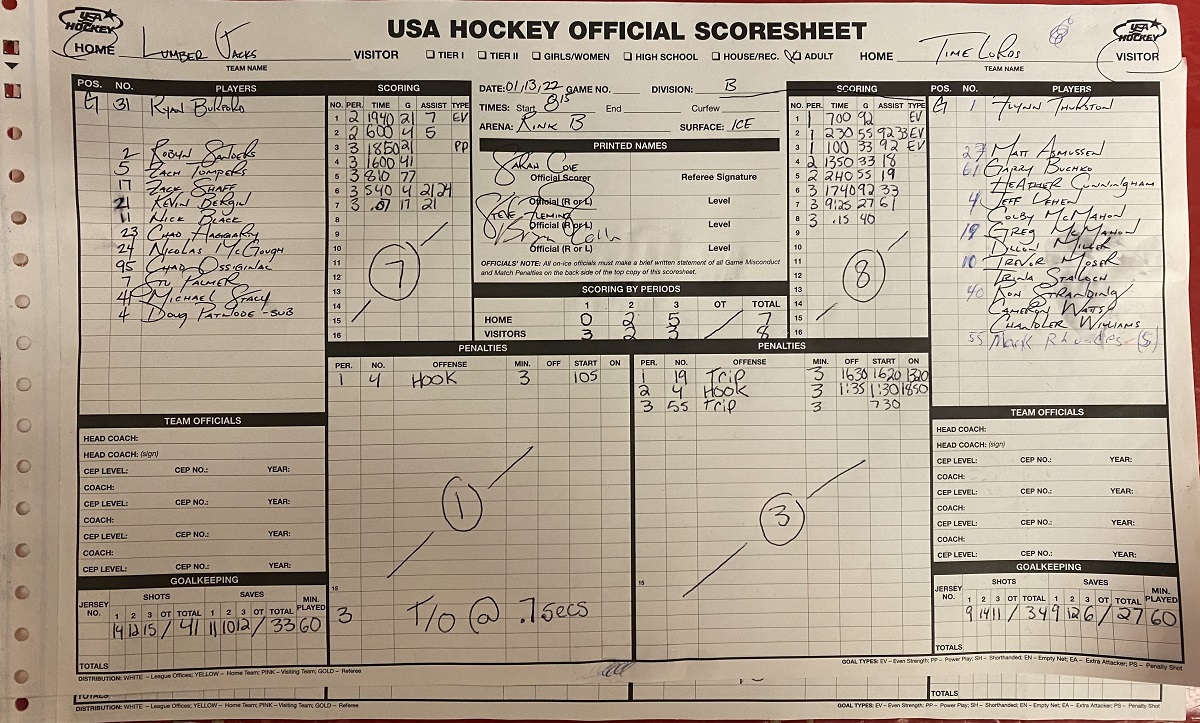 USA HOCKEY OFFICIAL SCORESHEET
USA HOCKEY
HOME Lumber Jacks VISITOR
TEAM NAME
TIER I TIER II GIRLS/WOMEN HIGH SCHOOL HOUSE/REC. ADULT
HOME Time Lords VISITOR
TEAM NAME
USA HOCKEY
POS. NO. PLAYERS
G 31 Ryan Burford
2 Robyn Sanders
5 Zach Tompers
17 Zack Shaff
21 Kevin Bergin
11 Nick Black
23 Chad Haggarty
24 Nicolas McGough
95 Chad Ossiginac
7 Stu Palmer
41 Michael Stacy
4 Doug Patnode -sub
SCORING
NO. PER. TIME G ASSIST TYPE
1 2 1940 21 7 EV
2 2 600 4 5
3 3 1850 21 PP
4 3 1600 41
5 3 810 77
6 3 540 4 21 24
7 3 .07 17 21
8
9
10
11
12
13
14
15
16
7
DATE: 01,13,22 GAME NO. DIVISION: B
TIMES: Start 8 15 End Curfew
ARENA: Rink B SURFACE: ICE
PRINTED NAMES
Sarah Cole
Official Scorer Referee Signature
Official (R or L) Level
Steve Fleming
Official (R or L) Level
Official (R or L) Level
OFFICIALS' NOTE: All on-ice officials must make a brief written statement of all Game Misconduct
and Match Penalties on the back side of the top copy of this scoresheet.
SCORING BY PERIODS
1 2 3 OT TOTAL
HOME 0 2 5 / 7
VISITORS 3 2 3 / 8
SCORING
NO. PER. TIME G ASSIST TYPE
1 1 700 92 EV
2 1 230 55 92 33 EV
3 1 100 33 92 EV
4 2 1350 33 18
5 2 240 55 19
6 3 1740 92 33
7 3 9:25 27 61
8 3 .15 40
9
10
11
12
13
14
15
16
8
POS. NO. PLAYERS
G 1 Flynn Thurston
27 Matt Asmussen
61 Garry Buchko
Heather Cunningham
4 Jeff Dehen
Colby McMahon
19 Greg McMahon
Dillon Miller
10 Trevor Moser
Trina Stalloch
40 Ron Strandin
Cameron Watts
Chandler Williams
55 Mark Rhoades (S)
PENALTIES
PER. NO. OFFENSE MIN. OFF START ON
1 4 Hook 3 105
1
15
3 T/O @ .7secs
PENALTIES
PER. NO. OFFENSE MIN. OFF START ON
1 19 Trip 3 1630 1620 1320
2 4 Hook 3 1:35 1:30 1850
3 55 Trip 3 730
3
15
TEAM OFFICIALS
HEAD COACH:
HEAD COACH: (sign)
CEP LEVEL: CEP NO.: YEAR:
COACH:
CEP LEVEL: CEP NO.: YEAR:
COACH:
CEP LEVEL: CEP NO.: YEAR:
COACH:
CEP LEVEL: CEP NO.: YEAR:
GOALKEEPING
JERSEY NO. SHOTS SAVES MIN. PLAYED
1 2 3 OT TOTAL 1 2 3 OT TOTAL
14 12 15 / 41 11 10 12 / 33 60
TOTALS
TEAM OFFICIALS
HEAD COACH:
HEAD COACH: (sign)
CEP LEVEL: CEP NO.: YEAR:
COACH:
CEP LEVEL: CEP NO.: YEAR:
COACH:
CEP LEVEL: CEP NO.: YEAR:
COACH:
CEP LEVEL: CEP NO.: YEAR:
GOALKEEPING
JERSEY NO. SHOTS SAVES MIN. PLAYED
1 2 3 OT TOTAL 1 2 3 OT TOTAL
9 14 11 / 34 9 12 6 / 27 60
TOTALS
DISTRIBUTION: WHITE – League Offices; YELLOW – Home Team; PINK – Visiting Team; GOLD – Referee
GOAL TYPES: EV – Even Strength; PP – Power Play; SH – Shorthanded; EN – Empty Net; EA – Extra Attacker; PS – Penalty Shot
TOTALS
TOTALS
DISTRIBUTION: WHITE – League Offices; YELLOW – Home Team; PINK – Visiting Team; GOLD – Referee
GOAL TYPES: EV – Even Strength; PP – Power Play; SH – Shorthanded; EN – Empty Net; EA – Extra Attacker; PS – Penalty Shot